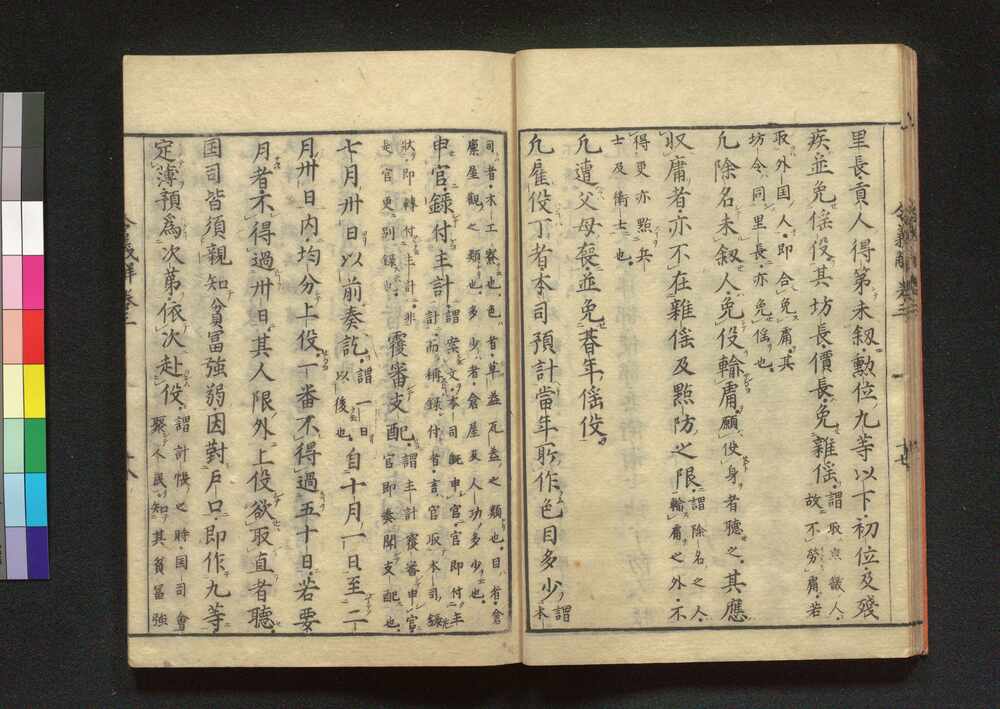 里長貢人得第未叙勲位九等以下初位及殘
疾並免徭役其坊長價長免雜徭謂取京職人
故不勞庸若
取外国人即合免庸其
坊令同里長亦免徭也
凡除名未叙人免役輸庸願役身者聽之其應
収庸者亦不在雜徭及點防之限謂除名之人
輸庸之外不
得更亦點兵
士及衛士也
凡遭父母喪並免朞年徭役
凡雇役丁者本司預計當年所作色目多少謂
本
司者木工寮也色者草葺瓦葺之類也目者倉
廩屋觀之類也多少者倉屋及人功多少也
申官録付主計謂案文本司既申官官即付主
計而稱録付者言官取本司録
状即轉付主計非
是官更別録也
覆審支配謂主計覆審申官
官即奏聞支配也
七月卅日以前奏訖謂一日
以後也
自十月一日至二
月卅日内均分上役一番不得過五十日若要
月者不得過卅日其人限外上役欲取直者聽
国司皆須親知貧冨強弱因對戸口即作九等
定簿預爲次第依次赴役謂計帳之時国司會
聚人民知其貧冨強
令義解 巻三 十七
令義解 巻三 十八